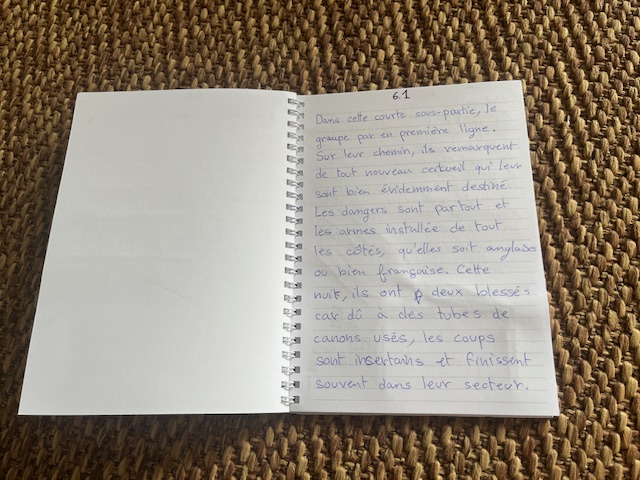 6.1
Dans cette courte sous-partie, le
groupe par en première ligne.
Sur leur chemin, ils remarquent
de tout nouveau cerkueil qui leur
sont bien évidemment destiné
Les dangers sont partout et
les armes installée de tout
les côtés, qu'elles soit anglaise
ou bien française. Cette
nuit, ils ont deux blessés
car dû à des tubes de
canons usés, les coups
sont insertains et finissent
souvent dans leur secteur.